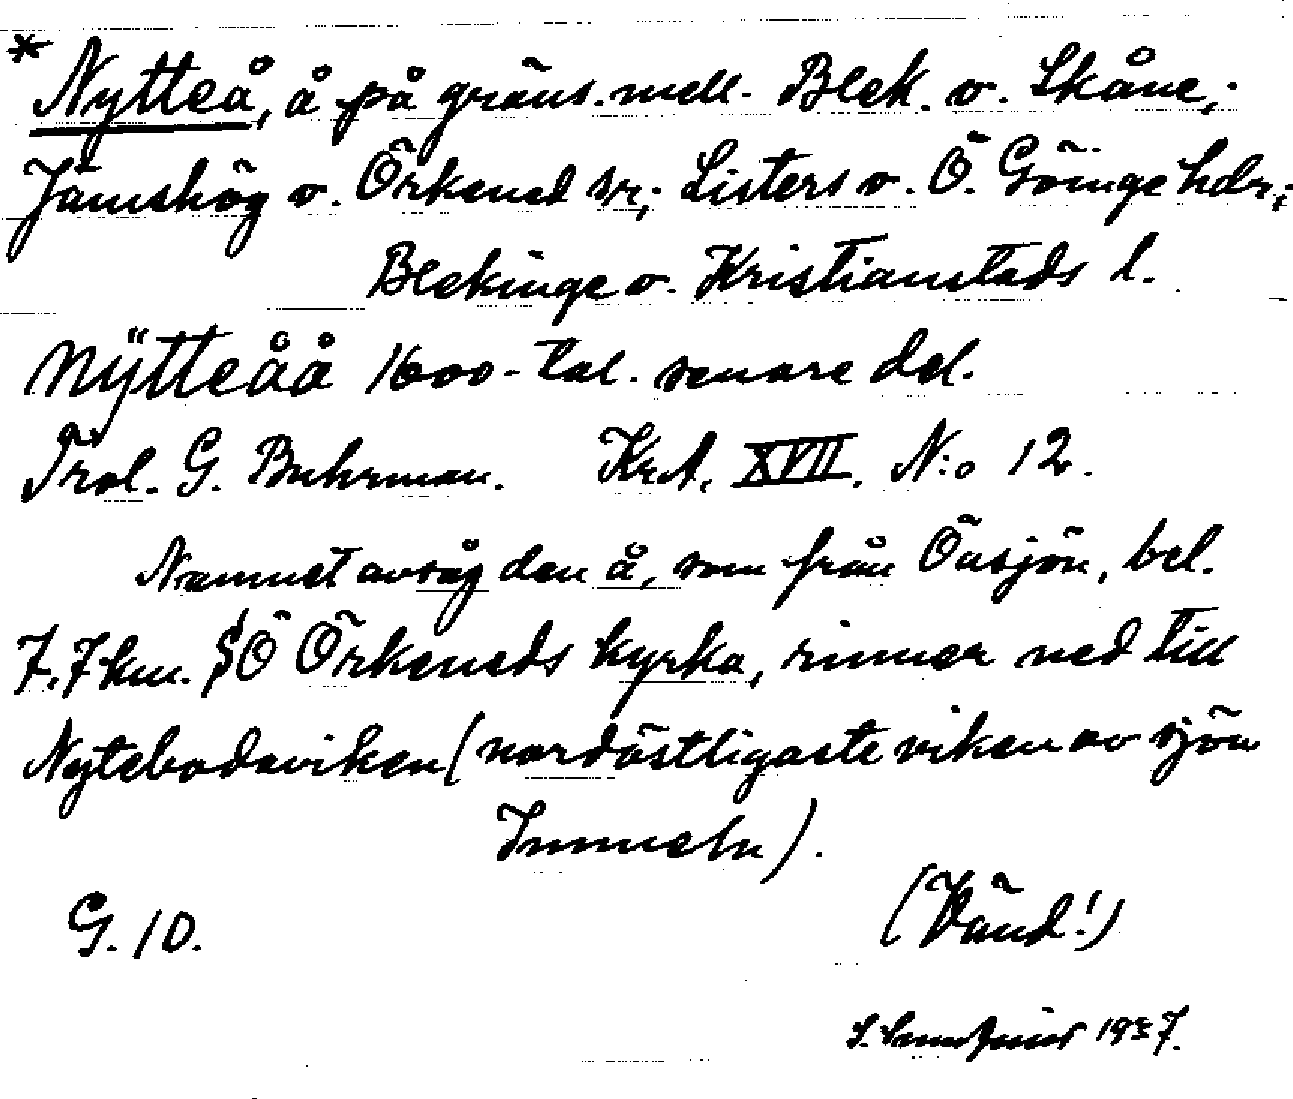 * Nytteå, å på gräns. mell. Blek. o. Skåne;
Jämshög o. Örkened snr; Listers o. Ö. Göinge hdr;
Blekinge o. Kristianstads l.
Nÿtteåå 1600-tal. senare del.
Trol. G. Buhrman. KrA. XVII. N:o 12.
Namnet avsåg den å, som från Öasjön, bel.
7.7 km. SÖ Örkeneds kyrka, rinner ned till
Nytebodaviken (nordöstligaste viken av sjön
Immeln).
G. 10. (Vänd!)
S. 1937.